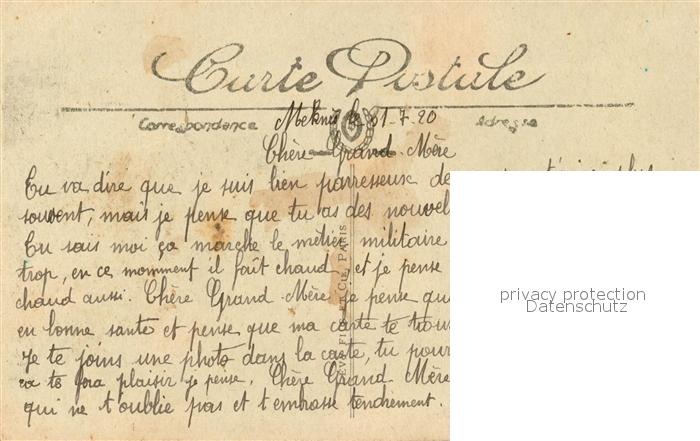 Carte Postale
Correspondance
Adresse
Meknès le 31-7-20
Chère Grand-Mère
Tu va dire que je suis bien parresseux de
souvent, mais je pense que tu as des nouvel
Tu sais moi ça marche le métier militaire
trop, en ce momment il fait chaud et je pense
chaud aussi. Chère Grand-Mère je pense qu
en bonne sante et pense que ma carte te trou
Je te joins une photo dans la carte, tu pour
ca te fera plaisir je pense. Chère Grand Mère
qui ne t'oublie pas et t'embrasse tendrement.
LÉVY FILS ET CIE, PARIS
privacy protection
Datenschutz